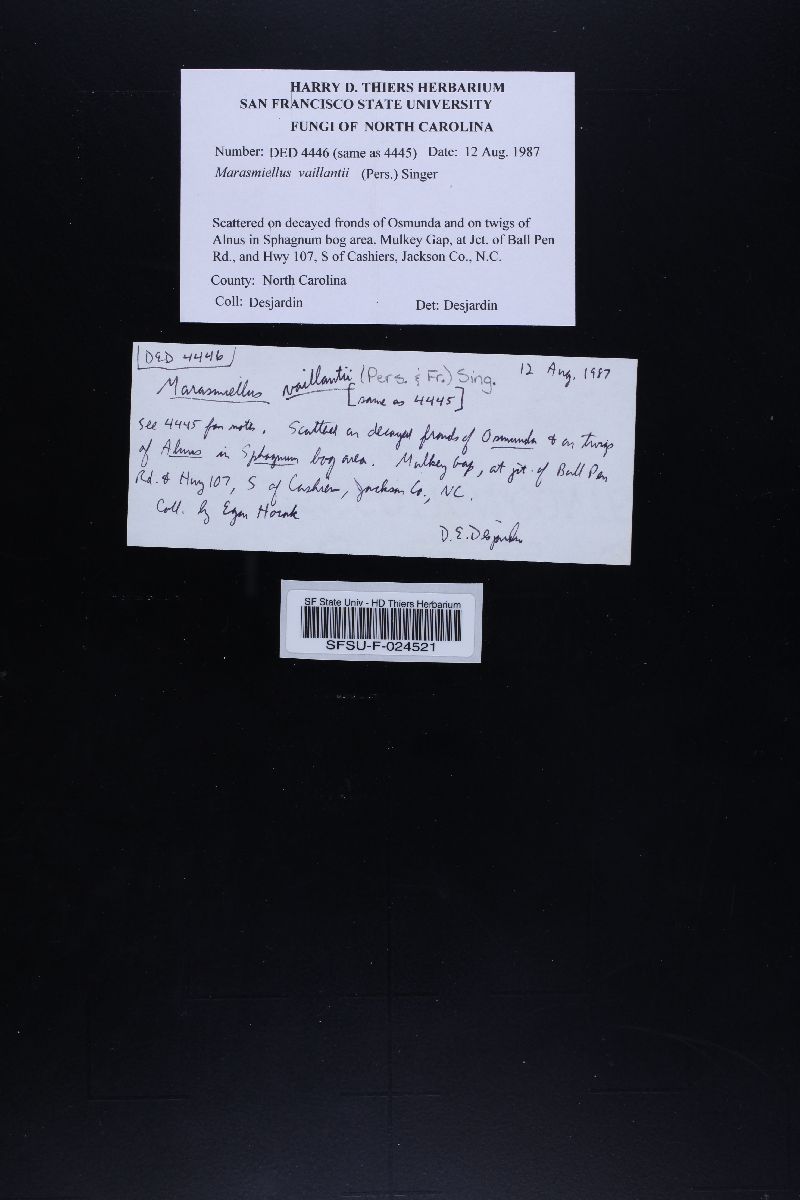 HARRY D. THIERS HERBARIUM
SAN FRANCISCO STATE UNIVERSITY
FUNGI OF NORTH CAROLINA
Number: DED 4446 (same as 4445) Date: 12 Aug. 1987
Marasmiellus vaillantii (Pers.) Singer
Scattered on decayed fronds of Osmunda and on twigs of
Alnus in Sphagnum bog area. Mulkey Gap, at Jct. of Ball Pen
Rd., and Hwy 107, S of Cashiers, Jackson Co., N.C.
County: North Carolina
Coll: Desjardin Det: Desjardin
DED 4446
12 Aug. 1987
Marasmiellus vaillantii (Pers. & Fr.) Sing.
[same as 4445]
See 4445 for notes. Scattered on decayed fronds of Osmunda & on twigs
of Alnus in Sphagnum bog area. Mulkey Gap, at jct. of Ball Pen
Rd. & Hwy 107, S of Cashiers, Jackson Co., NC.
Coll. by Egon Horak
D.E. Desjardin
SF State Univ - HD Thiers Herbarium
SFSU-F-024521